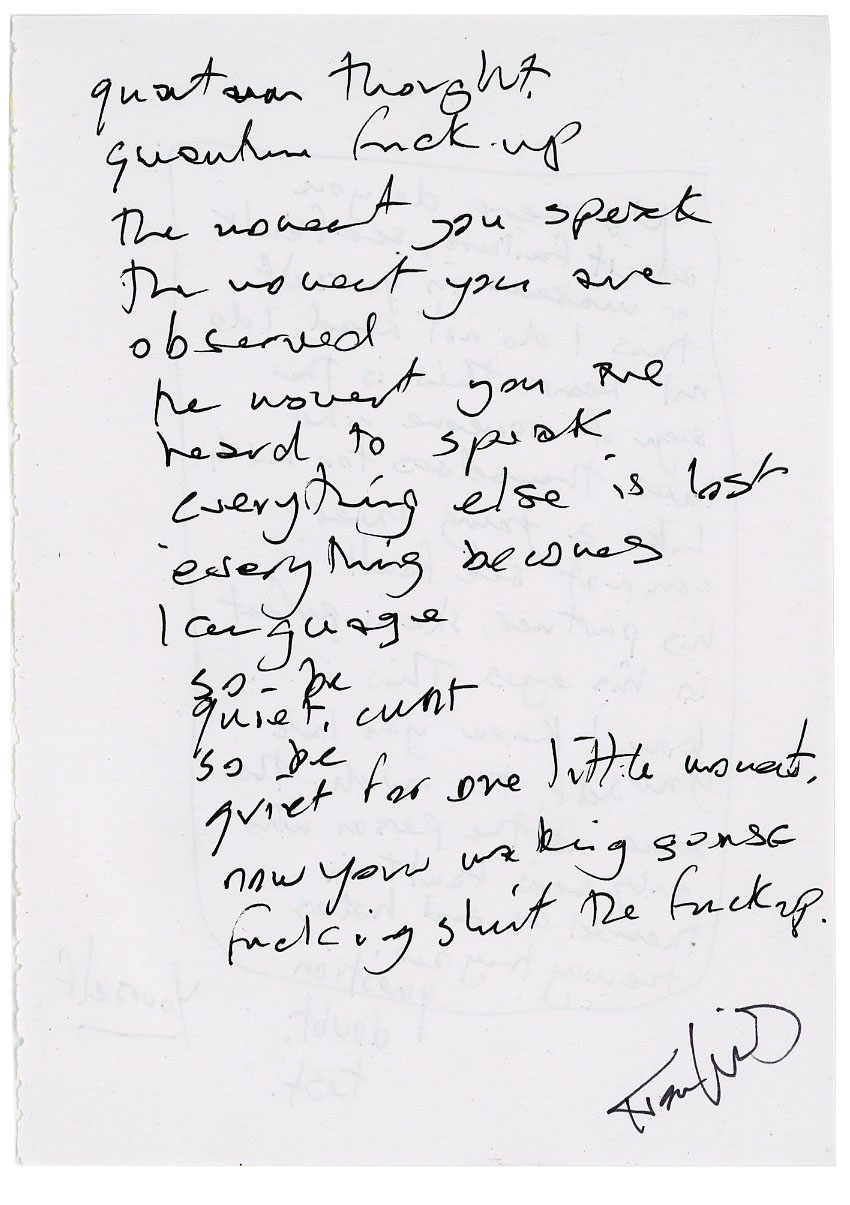 quantum thought.
quantum fuck-up
the moment you speak
the moment you are
observed
he moment you are
heard to speak
everything else is lost
everything becomes
language
so be
quiet, cunt
so be
quiet for one little moment.
now your making sense
fucking shut the fuck up.